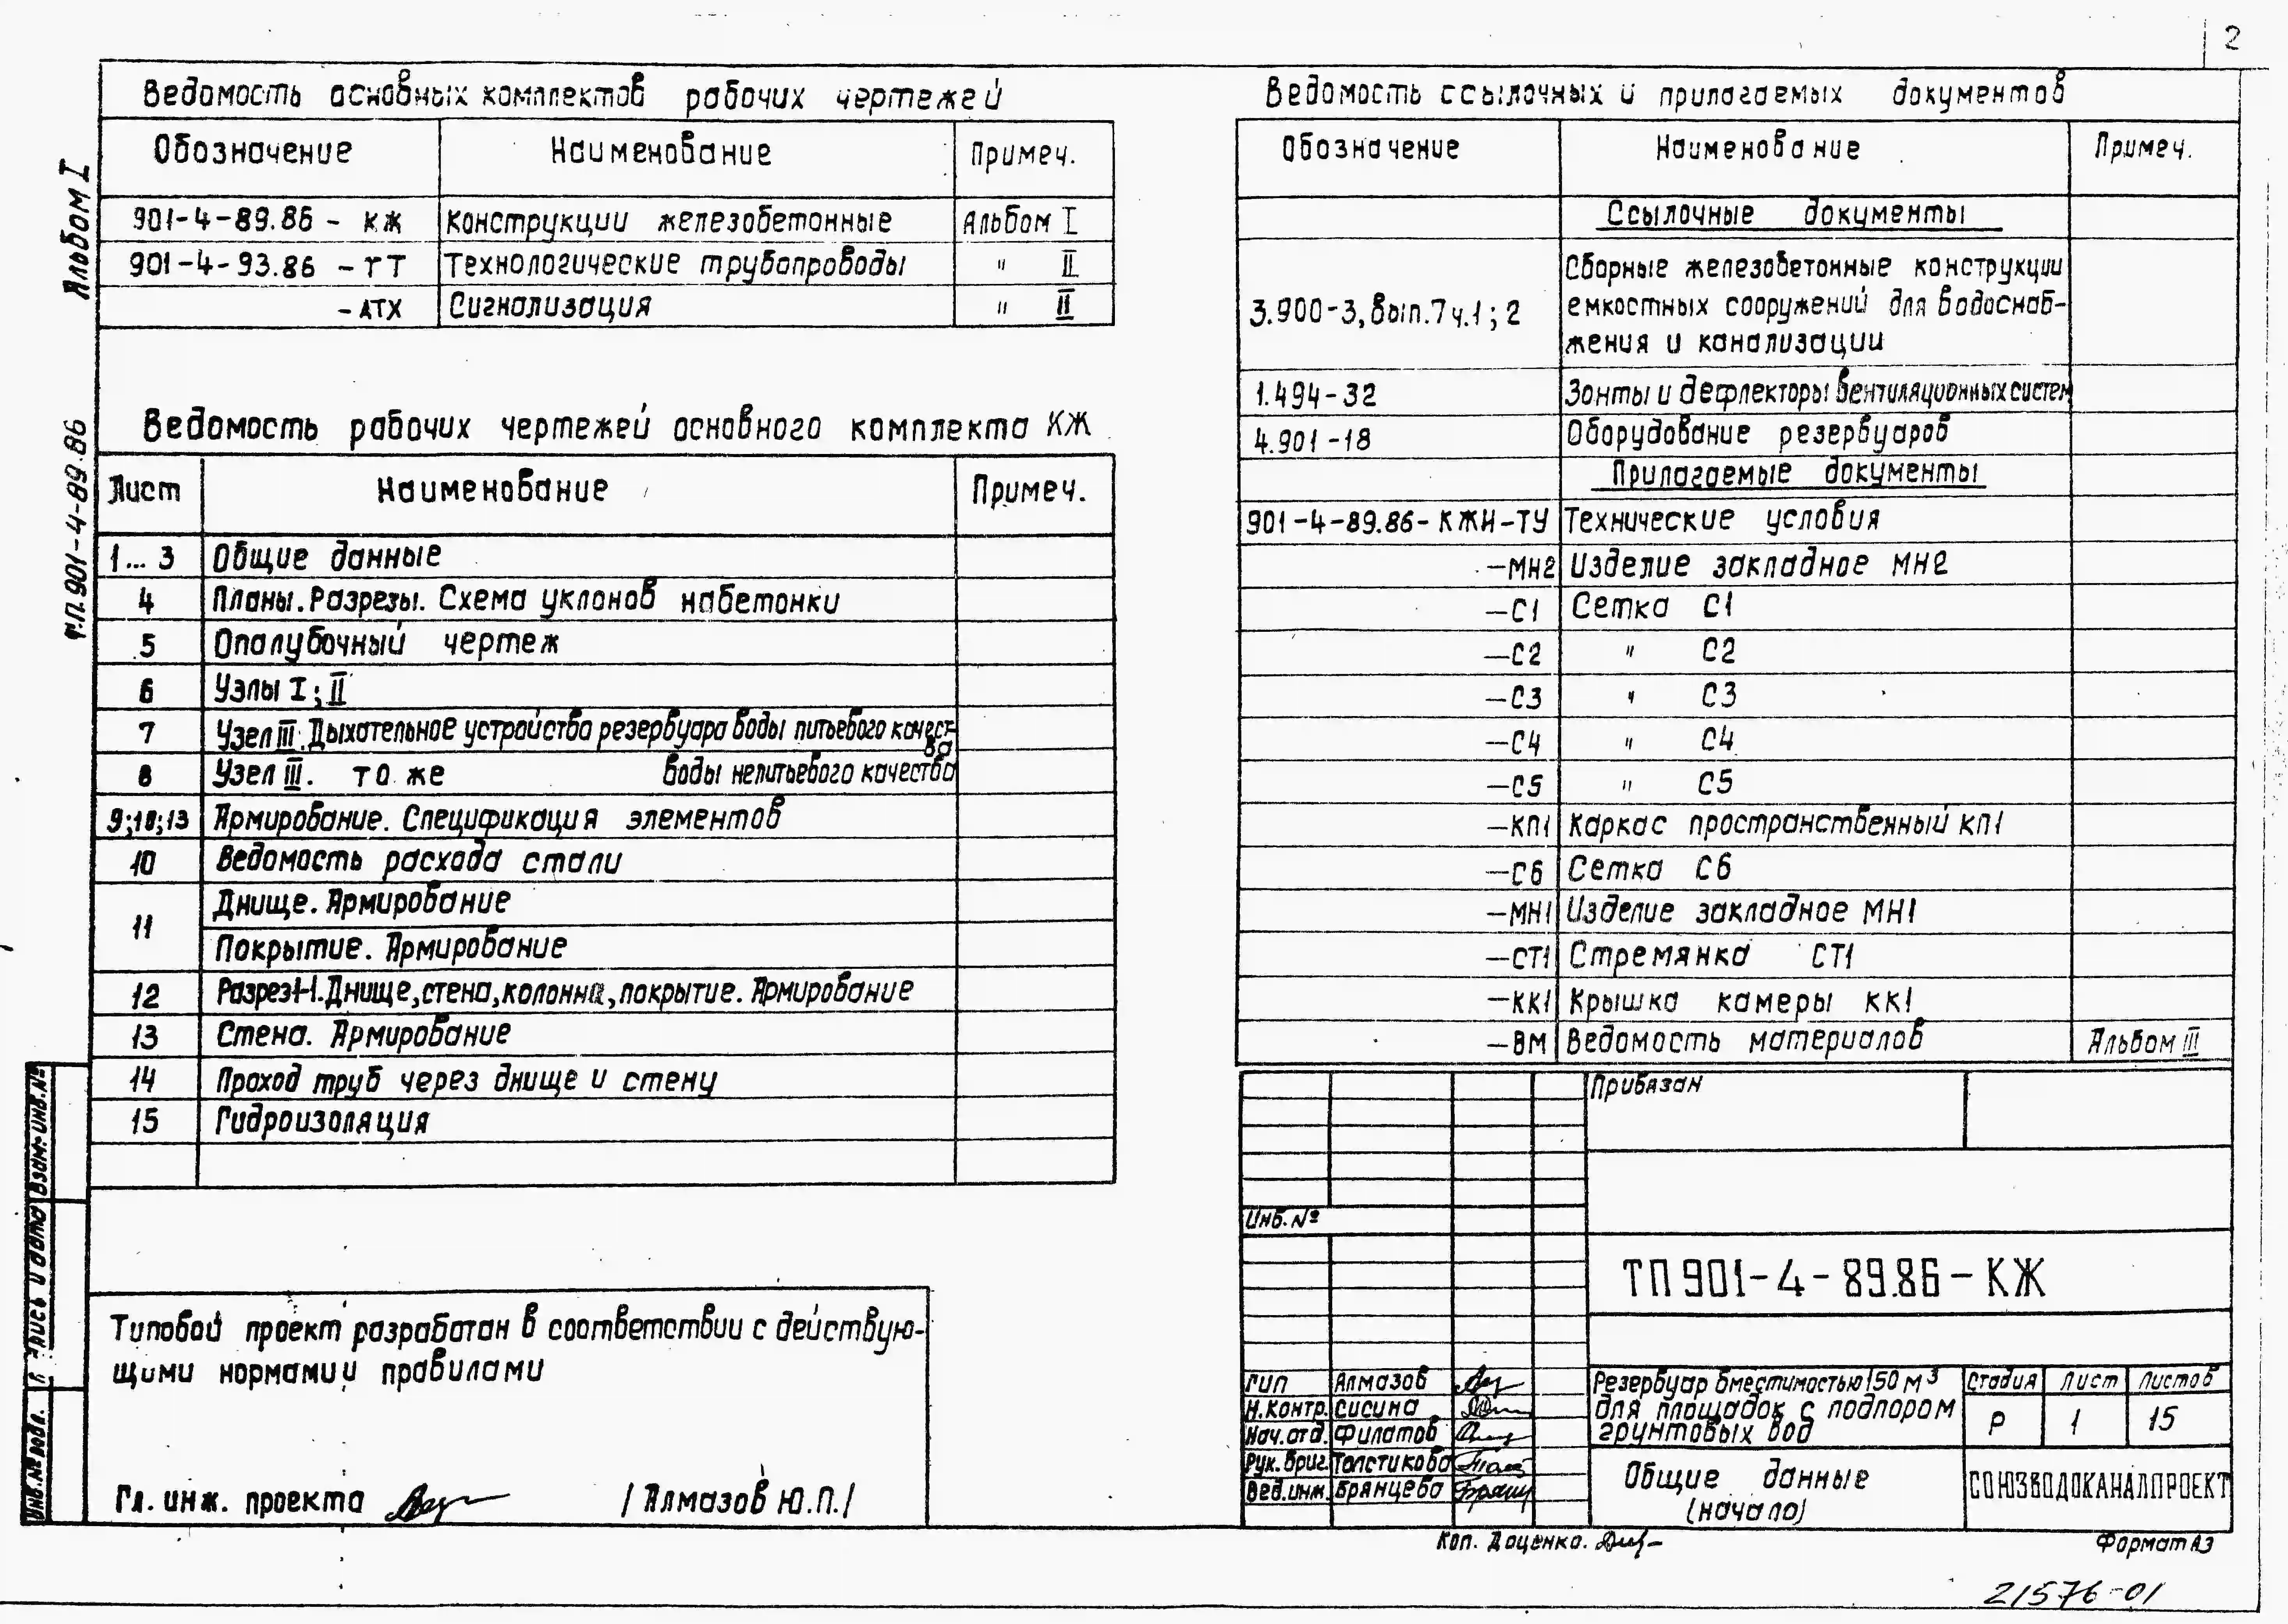 2
Альбом I
т.п. 901-4-89.86
Ведомость основных комплектов рабочих чертежей
Обозначение Наименование Примеч.
901-4-89.86 - КЖ Конструкции железобетонные Альбом I
901-4-93.86 - ТТ Технологические трубопроводы " II
- АТХ Сигнализация " II
Ведомость рабочих чертежей основного комплекта КЖ
Лист Наименование Примеч.
1... 3 Общие данные
4 Планы. Разрезы. Схема уклонов набетонки
5 Опалубочный чертеж
6 Узлы I; II
7 Узел III. Дыхательное устройство резервуара воды питьевого качест-
ва
8 Узел III. то же воды непитьевого качества
9;10;13 Армирование. Спецификация элементов
10 Ведомость расхода стали
11 Днище. Армирование
Покрытие. Армирование
12 Разрез 1-1. Днище, стена, колонна, покрытие. Армирование
13 Стена. Армирование
14 Проход труб через днище и стену
15 Гидроизоляция
Типовой проект разработан в соответствии с действую-
щими нормами и правилами
Гл. инж. проекта / Алмазов Ю.П./
Взам. инв. №
Подпись и дата
Инв. № подл.
Ведомость ссылочных и прилагаемых документов
Обозначение Наименование Примеч.
Ссылочные документы
3.900-3, вып.7 ч.1; 2 Сборные железобетонные конструкции
емкостных сооружений для водоснаб-
жения и канализации
1.494-32 Зонты и дефлекторы вентиляционных систем
4.901-18 Оборудование резервуаров
Прилагаемые документы
901-4-89.86- КЖИ-ТУ Технические условия
-МН2 Изделие закладное МН2
-С1 Сетка С1
-С2 " С2
-С3 " С3
-С4 " С4
-С5 " С5
-КП1 Каркас пространственный КП1
-С6 Сетка С6
-МН1 Изделие закладное МН1
-СТ1 Стремянка СТ1
-КК1 Крышка камеры КК1
-ВМ Ведомость материалов Альбом III
Привязан
Инв. №
ТП 901-4-89.86-КЖ
ГИП Алмазов
Н.контр. Сисина
Нач.отд. Филатов
Рук.бриг. Толстикова
Вед.инж. Брянцева
Резервуар вместимостью 150 м3
для площадок с подпором
грунтовых вод
Стадия Лист Листов
Р 1 15
Общие данные
(начало)
СОЮЗВОДОКАНАЛПРОЕКТ
Коп. Даценко.
Формат А3
21576-01